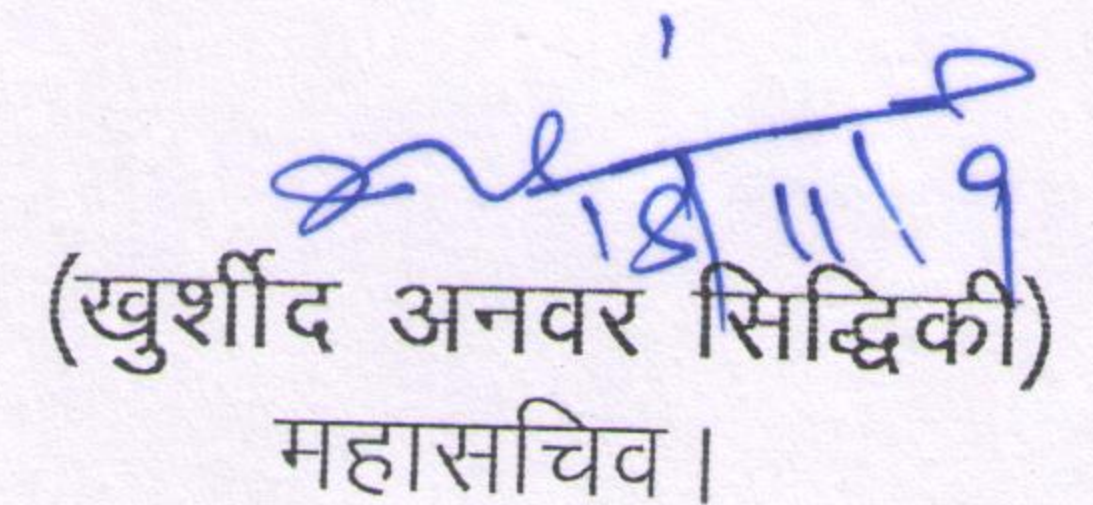 18/11/19
(खुर्शीद अनवर सिद्धिकी)
महासचिव।